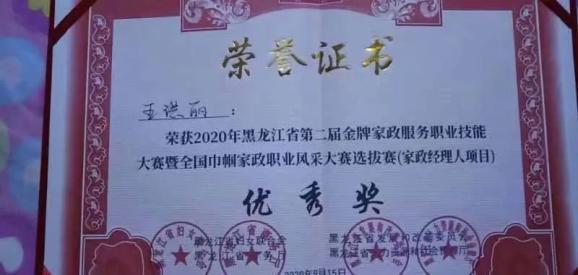 荣誉证书
王洪丽：
荣获2020年黑龙江省第二届金牌家政服务职业技能
大赛暨全国巾帼家政职业风采大赛选拔赛(家政经理人项目)
优秀奖
黑龙江省妇女联合会 黑龙江省发展和改革委员会
黑龙江省商务厅 黑龙江省人力资源和社会保障厅
2020年9月15日